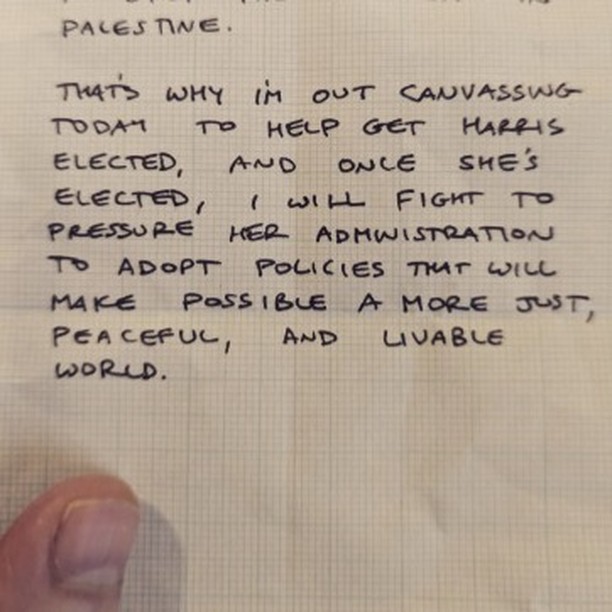 PALESTINE.
THAT'S WHY I'M OUT CANVASSING
TODAY TO HELP GET HARRIS
ELECTED, AND ONCE SHE'S
ELECTED, I WILL FIGHT TO
PRESSURE HER ADMINISTRATION
TO ADOPT POLICIES THAT WILL
MAKE POSSIBLE A MORE JUST,
PEACEFUL, AND LIVABLE
WORLD.